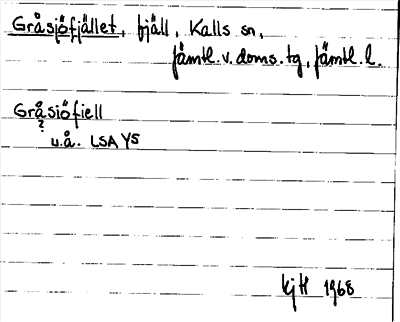 Gråsjöfjället, fjäll, Kalls sn,
Jämtl. v. doms. tg, Jämtl. l.
Gråsiöfiell
?
u.å. LSA Y5
kjH 1968